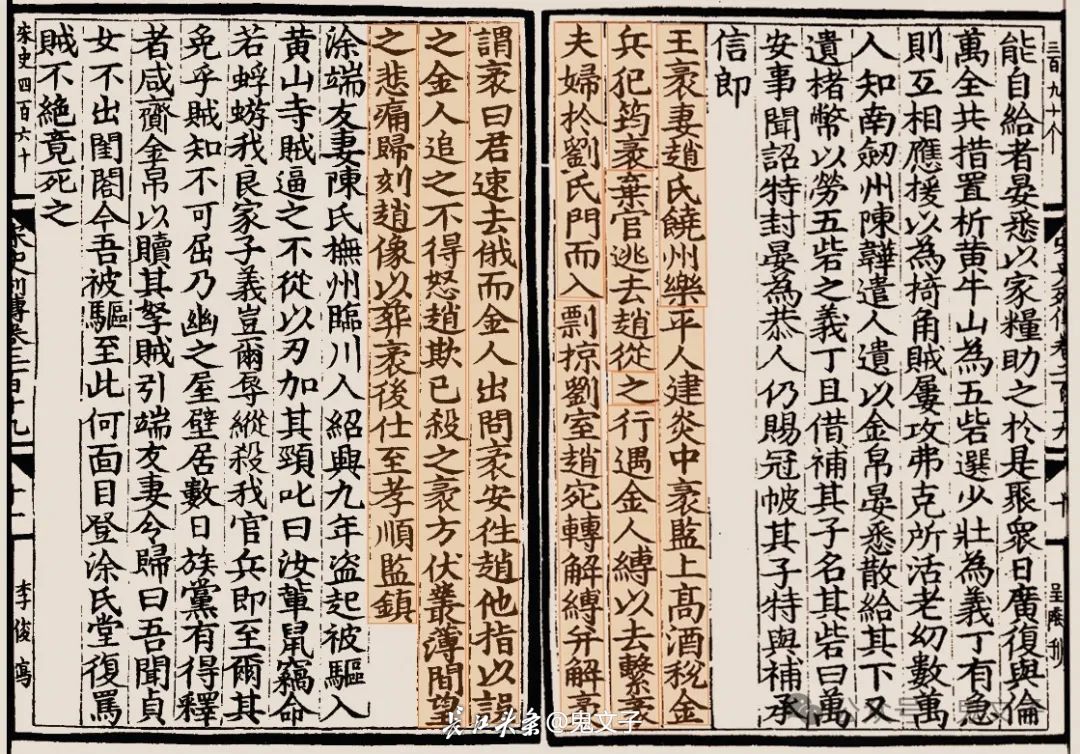 三百九十个
能自給者晏悉以家糧助之於是聚衆日廣復與倫
萬全共措置析黄牛山為五砦選少壯為義丁有急
則互相應援以為掎角賊屢攻弗克所活老幼數萬
人知南劔州陳韡遣人遺以金帛晏悉散給其下又
遺楮幣以勞五砦之義丁且借補其子名其砦曰萬
安事聞詔特封晏為恭人仍賜冠帔其子特與補承
信郎
王袤妻趙氏饒州樂平人建炎中袤監上髙酒稅金
兵犯筠袤棄官逃去趙從之行遇金人縛以去繫袤
夫婦於劉氏門而入剽掠劉室趙宛轉解縛并解袤
謂袤曰君速去俄而金人出問袤安往趙他指以誤
之金人追之不得怒趙欺已殺之袤方伏叢薄間望
之悲痛歸刻趙像以葬袤後仕至孝順監鎮
涂端友妻陳氏撫州臨川人紹興九年盗起被驅入
黄山寺賊逼之不從以刃加其頸叱曰汝軰鼠竊命
若蜉蝣我良家子義豈爾辱縱殺我官兵即至爾其
免乎賊知不可屈乃幽之屋壁居數日族黨有得釋
者咸齎金帛以贖其孥賊引端友妻令歸曰吾聞貞
女不出閨閤今吾被驅至此何面目登涂氏堂復罵
賊不絶竟死之
宋史四百六十
宋史列傳卷二百十九
十二
李俊寫
长江头条@鬼文子